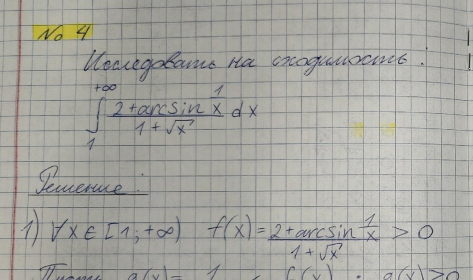 № 4
Исследовать на сходимость:
+∞
∫ (2 + arcsin 1/x) / (1 + √x) dx
1
Решение:
1) ∀x ∈ [1; +∞) f(x) = (2 + arcsin 1/x) / (1 + √x) > 0
g(x) = 1 f(x) g(x) > 0